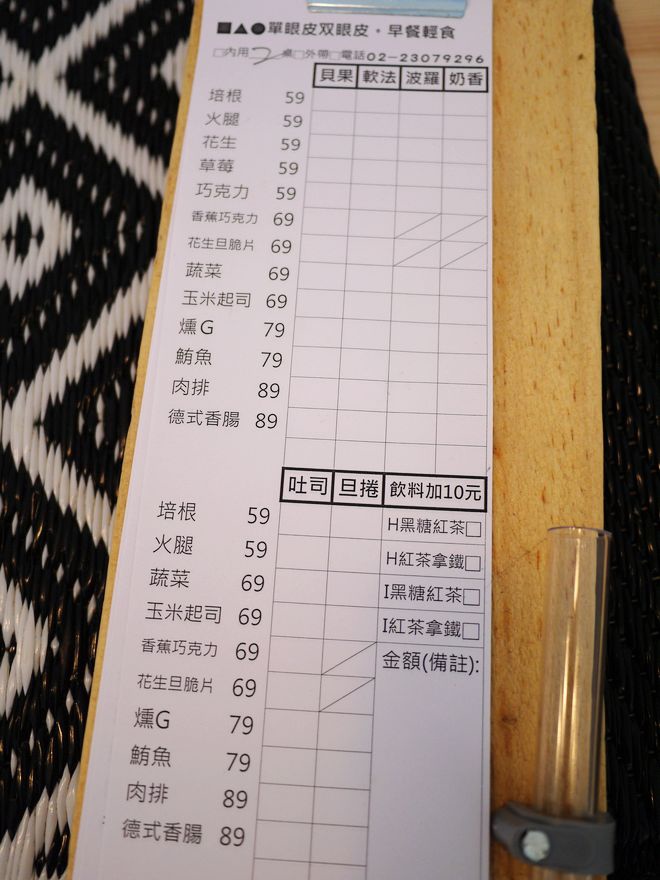 ■▲●單眼皮双眼皮。早餐輕食
□內用2桌□外帶□電話02-23079296
貝果 軟法 波羅 奶香
培根 59
火腿 59
花生 59
草莓 59
巧克力 59
香蕉巧克力 69
花生旦脆片 69
蔬菜 69
玉米起司 69
燻G 79
鮪魚 79
肉排 89
德式香腸 89
吐司 旦捲 飲料加10元
培根 59 H黑糖紅茶□
火腿 59 H紅茶拿鐵□
蔬菜 69 I黑糖紅茶□
玉米起司 69 I紅茶拿鐵□
香蕉巧克力 69 金額(備註):
花生旦脆片 69
燻G 79
鮪魚 79
肉排 89
德式香腸 89